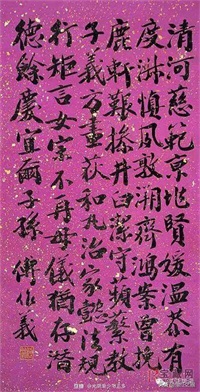 清河慈範京兆賢媛溫恭有
度淑慎風敦溯齊鴻案曾挽
鹿軒艱操井臼潔守蘋蘩教
子義方畫荻和丸治家懿法規
行矩言女宗不再母儀猶存潛
德餘慶宜爾子孫 傅作義